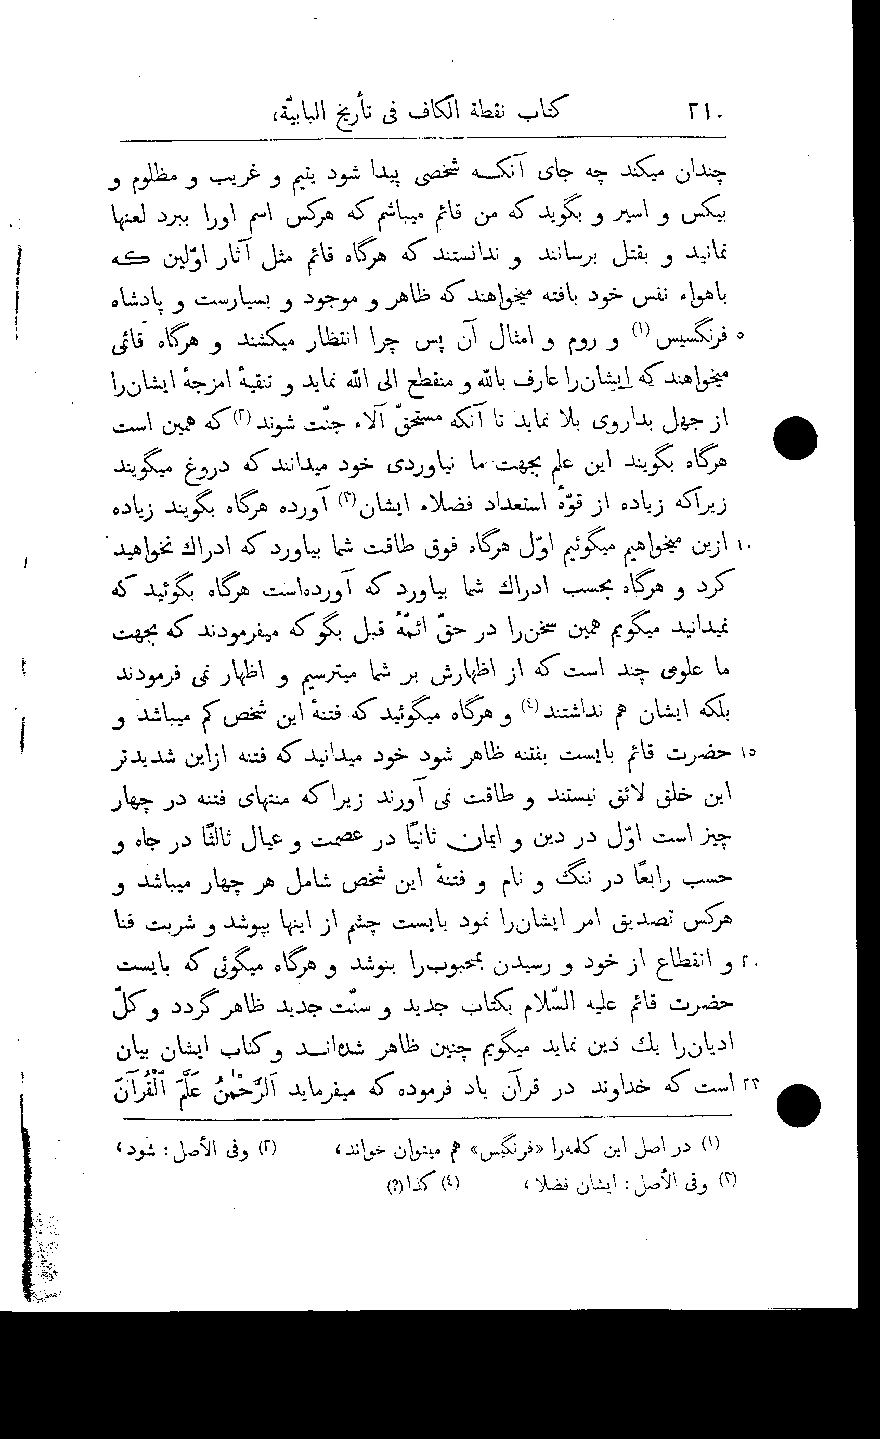 ٢١٠ کتاب نقطة الکاف فی تأریخ البابیّة،
چندان میکند چه جای آنکـه شخصی پیدا شود یتیم و غریب و مظلوم و
بیکس و اسیر و بگوید که من قائم میباشم که هرکس اسم اورا ببرد لعنها
نمانید و بقتل برسانند و ندانستند که هرگاه قائم مثل آثار اوّلین که
باهواء نفس خود بافته میخواهند که ظاهر و موجود و بسیارست و پادشاه
٥ فرنگسیس (١) و روم و امثال آن پس چرا انتظار میکشند و هرگاه قائمی
میخواهند که ایشان‌را عارف بالله و منقطع الی الله نماید و تنقیهٔ امزجهٔ ایشان‌را
از جهل بداروی بلا نماید تا آنکه مستحقّ آلاء جنّت شوند (٢) که همین است
هرگاه بگویند این علم بجهت ما نیاوردی خود میدانند که دروغ میگویند
زیراکه زیاده از قوّهٔ استعداد فضلاء ایشان (٣) آورده هرگاه بگویند زیاده
١٠ ازین میخواهیم میگوئیم اوّل هرگاه فوق طاقت شما بیاورد که ادراك نخواهید
کرد و هرگاه بحسب ادراك شما بیاورد که آورده‌است هرگاه بگوئید که
نمیدانید میگویم همین سخن‌را در حقّ ائمّهٔ قبل بگو که میفرمودند که بجهت
ما علومی چند است که از اظهارش بر شما میترسیم و اظهار نمی فرمودند
بلکه ایشان هم نداشتند (٤) و هرگاه میگوئید که فتنهٔ این شخص کم میباشد و
١٥ حضرت قائم بایست بفتنه ظاهر شود خود میدانید که فتنه ازاین شدیدتر
این خلق لائق نیستند و طاقت نمی آورند زیراکه منتهای فتنه در چهار
چیز است اوّل در دین و ایمان ثانیًا در عصمت و عیال ثالثًا در جاه و
حسب رابعًا در ننگ و نام و فتنهٔ این شخص شامل هر چهار میباشد و
هرکس تصدیق امر ایشان‌را نمود بایست چشم از اینها بپوشد و شربت فنا
٢٠ و انقطاع از خود و رسیدن بمحبوب‌را بنوشد و هرگاه میگوئی که بایست
حضرت قائم علیه السّلام بکتاب جدید و سنّت جدید ظاهر گردد و کلّ
ادیان‌را یك دین نماید میگویم چنین ظاهر شده‌انـد و کتاب ایشان بیان
٢٣ است که خداوند در قرآن یاد فرموده که میفرماید اَلرَّحْمٰنُ عَلَّمَ ٱلْقُرْآنَ
(١) در اصل این کلمه‌را «فرنگیس» هم میتوان خواند، (٢) وفی الأصل : شود،
(٣) وفی الأصل : ایشان فضلا، (٤) کذا (؟)